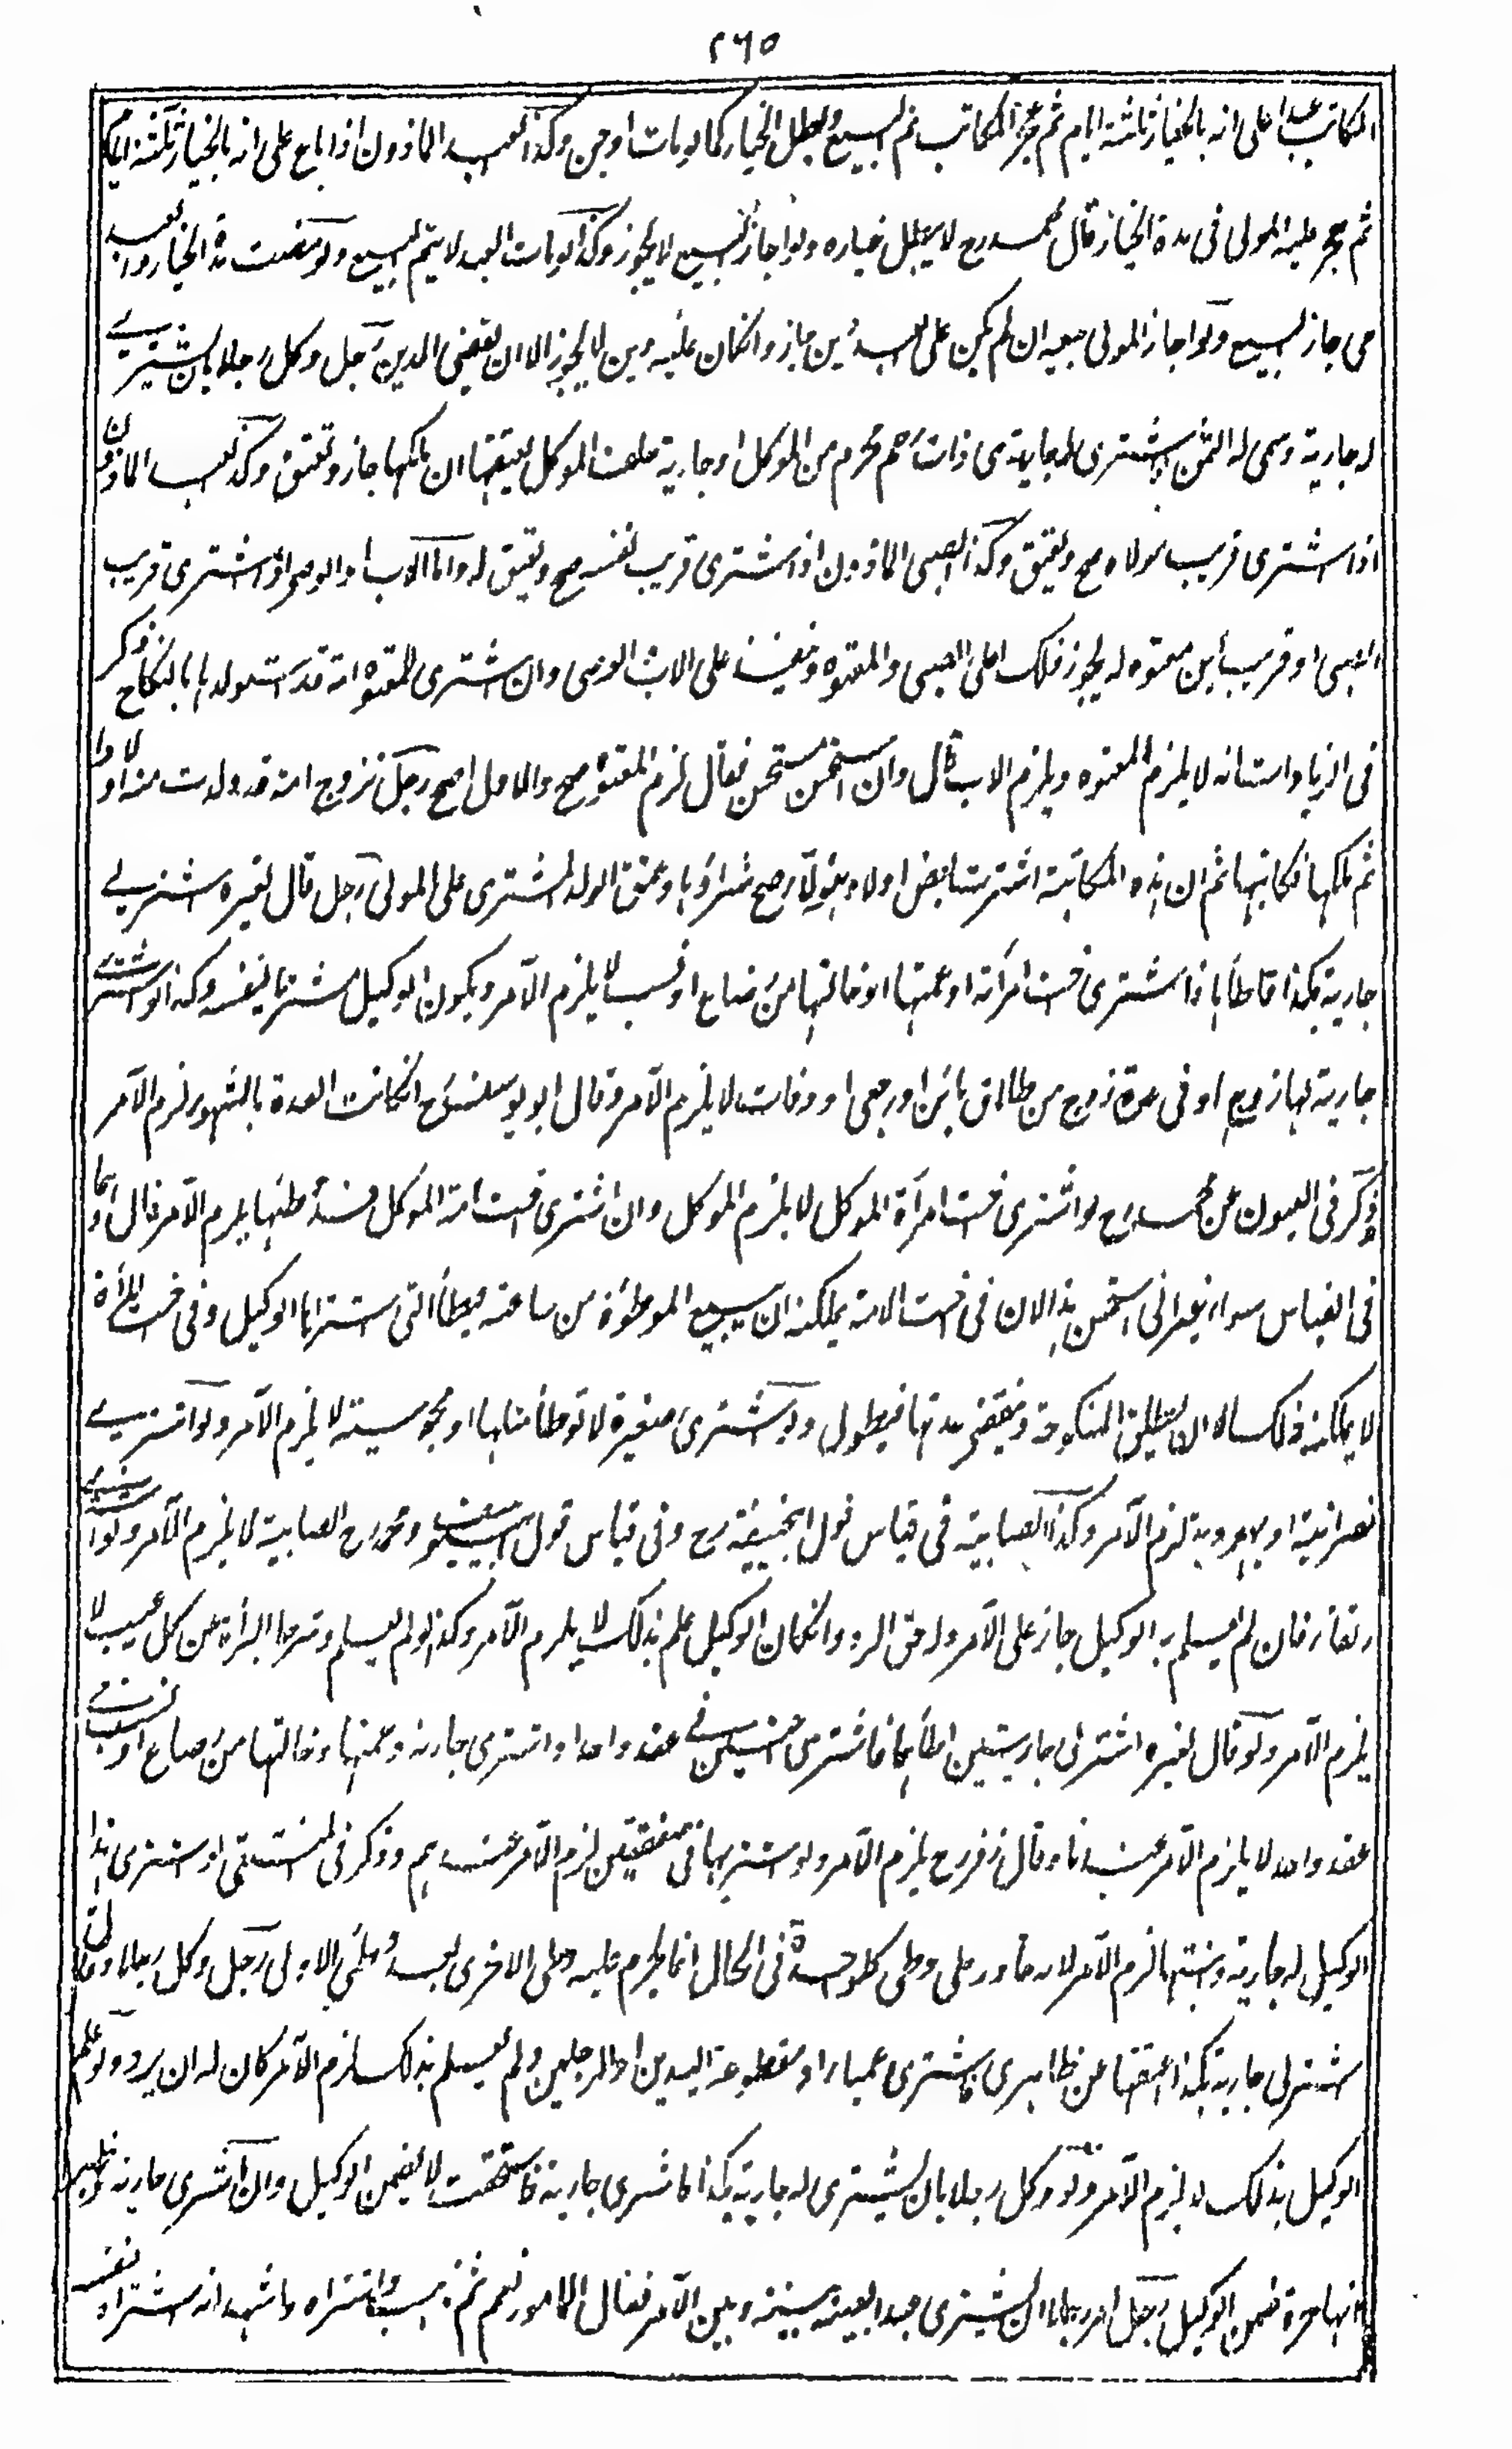 ٢٦٥
المكاتب عبدا على انه بالخيار ثلثة ايام ثم عجز المكاتب تم البيع وبطل الخيار كما لو مات او جن وكذا العبد الماذون اذا باع على انه بالخيار ثلثة ايام
ثم حجر عليه المولى فى مدة الخيار قال محمد رح لا يبطل خياره ولو اجاز البيع لا يجوز وكذا لو مات العبد لا يتم البيع ولو مضت مدة الخيار والعبد
حى جاز البيع ولو اجاز المولى بيعه ان لم يكن على العبد دين جاز وانكان عليه دين لا يجوز الا ان يقضى الدين رجل وكل رجلا بان يشترے
له جارية وسمى له الثمن فاشترى له جارية هى ذات رحم محرم من الموكل او جارية حلف الموكل بعتقها ان ملكها جاز وتعتق وكذا العبد الماذون
اذا اشترى قريب مولاه صح ويعتق وكذا الصبى الماذون اذا اشترى قريب نفسه صح ويعتق له واما الاب او الوصى اذا اشترى قريب
الصبى او قريب ابن معتوه له لا يجوز ذلك على الصبى والمعتوه وينفذ على الاب والوصى وان اشترى للمعتوه امة قد استولدها بالنكاح ذكر
فى الزيادات انه لا يلزم المعتوه ويلزم الاب قال وان استحسن مستحسن فقال لزم المعتوه صح والاول اصح رجل تزوج امة قد ولدت منه اولادا
ثم ملكها فكاتبها ثم ان هذه المكاتبة اشترت بعض اولاد هؤلاء صح شراؤها وعتق الولد المشترى على المولى رجل قال لغيره اشتر لے
جارية بكذا اطأها فاشترى اخت امرأته او عمتها او خالتها من رضاع او نسب لا يلزم الآمر ويكون الوكيل مشتريا لنفسه وكذا لو اشترى
جارية لها زوج او فى عدة زوج من طلاق بائن او رجعى او وفات لا يلزم الآمر وقال ابو يوسف رح انكانت العدة بالشهور لزم الآمر
وذكر فى العيون عن محمد رح لو اشترى اخت امرأة الموكل لا يلزم الموكل وان اشترى اخت امة الموكل قد وطئها يلزم الآمر قال وهما
فى القياس سواء غير انى استحسن هذا لان فى اخت الامة يمكنه ان يبيع الموطؤة من ساعته فيطأ التى اشتراها الوكيل وفى اخت المرأة
لا يمكنه ذلك الا ان يطلق المنكوحة وينقضى عدتها فيطول ولو اشترى صغيرة لا توطأ مثلها او مجوسية لا يلزم الآمر ولو اشترے
نصرانية او يهودية لزم الآمر وكذا الصابية فى قياس قول ابيحنيفة رح وفى قياس قول ابييوسف ومحمد رح الصابية لا يلزم الآمر ولو اشترى
رتقاء فان لم يعلم به الوكيل جاز على الآمر وله حق الرد وانكان الوكيل علم بذلك لا يلزم الآمر وكذا لو لم يعلم وشرط البراءة عن كل عيب لا
يلزم الآمر ولو قال لغيره اشتر لى جاريتين اطأهما فاشترى اختين فے عقد واحد او اشترى جارية وعمتها او خالتها من رضاع او نسب فے
عقد واحد لا يلزم الآمر عندنا وقال زفر رح يلزم الآمر ولو اشتريهما فى صفقتين لزم الآمر عندهم وذكر فى المنتقى لو اشترى هذا
الوكيل له جارية وبنتها لزم الآمر لانه قادر على وطى كل واحدة فى الحال انما يحرم عليه وطى الاخرى بعد وطى الاولى رجل وكل رجلا وقال
اشتر لى جارية بكذا اعتقها عن ظهارى فاشترى عمياء او مقطوعة اليدين او الرجلين ولم يعلم بذلك لزم الآمر كان له ان يرد ولو علم
الوكيل بذلك لا يلزم الآمر ولو وكل رجلا بان يشترى له جارية بكذا فاشترى جارية فاستحقت لا يضمن الوكيل وان اشترى جارية فظهر
انها حرة ضمن الوكيل رجل امر رجلا ان يشترى عبدا بعينه بينه وبين الآمر فقال المامور نعم ثم ذهب واشتراه واشهد انه اشتراه لنفسه